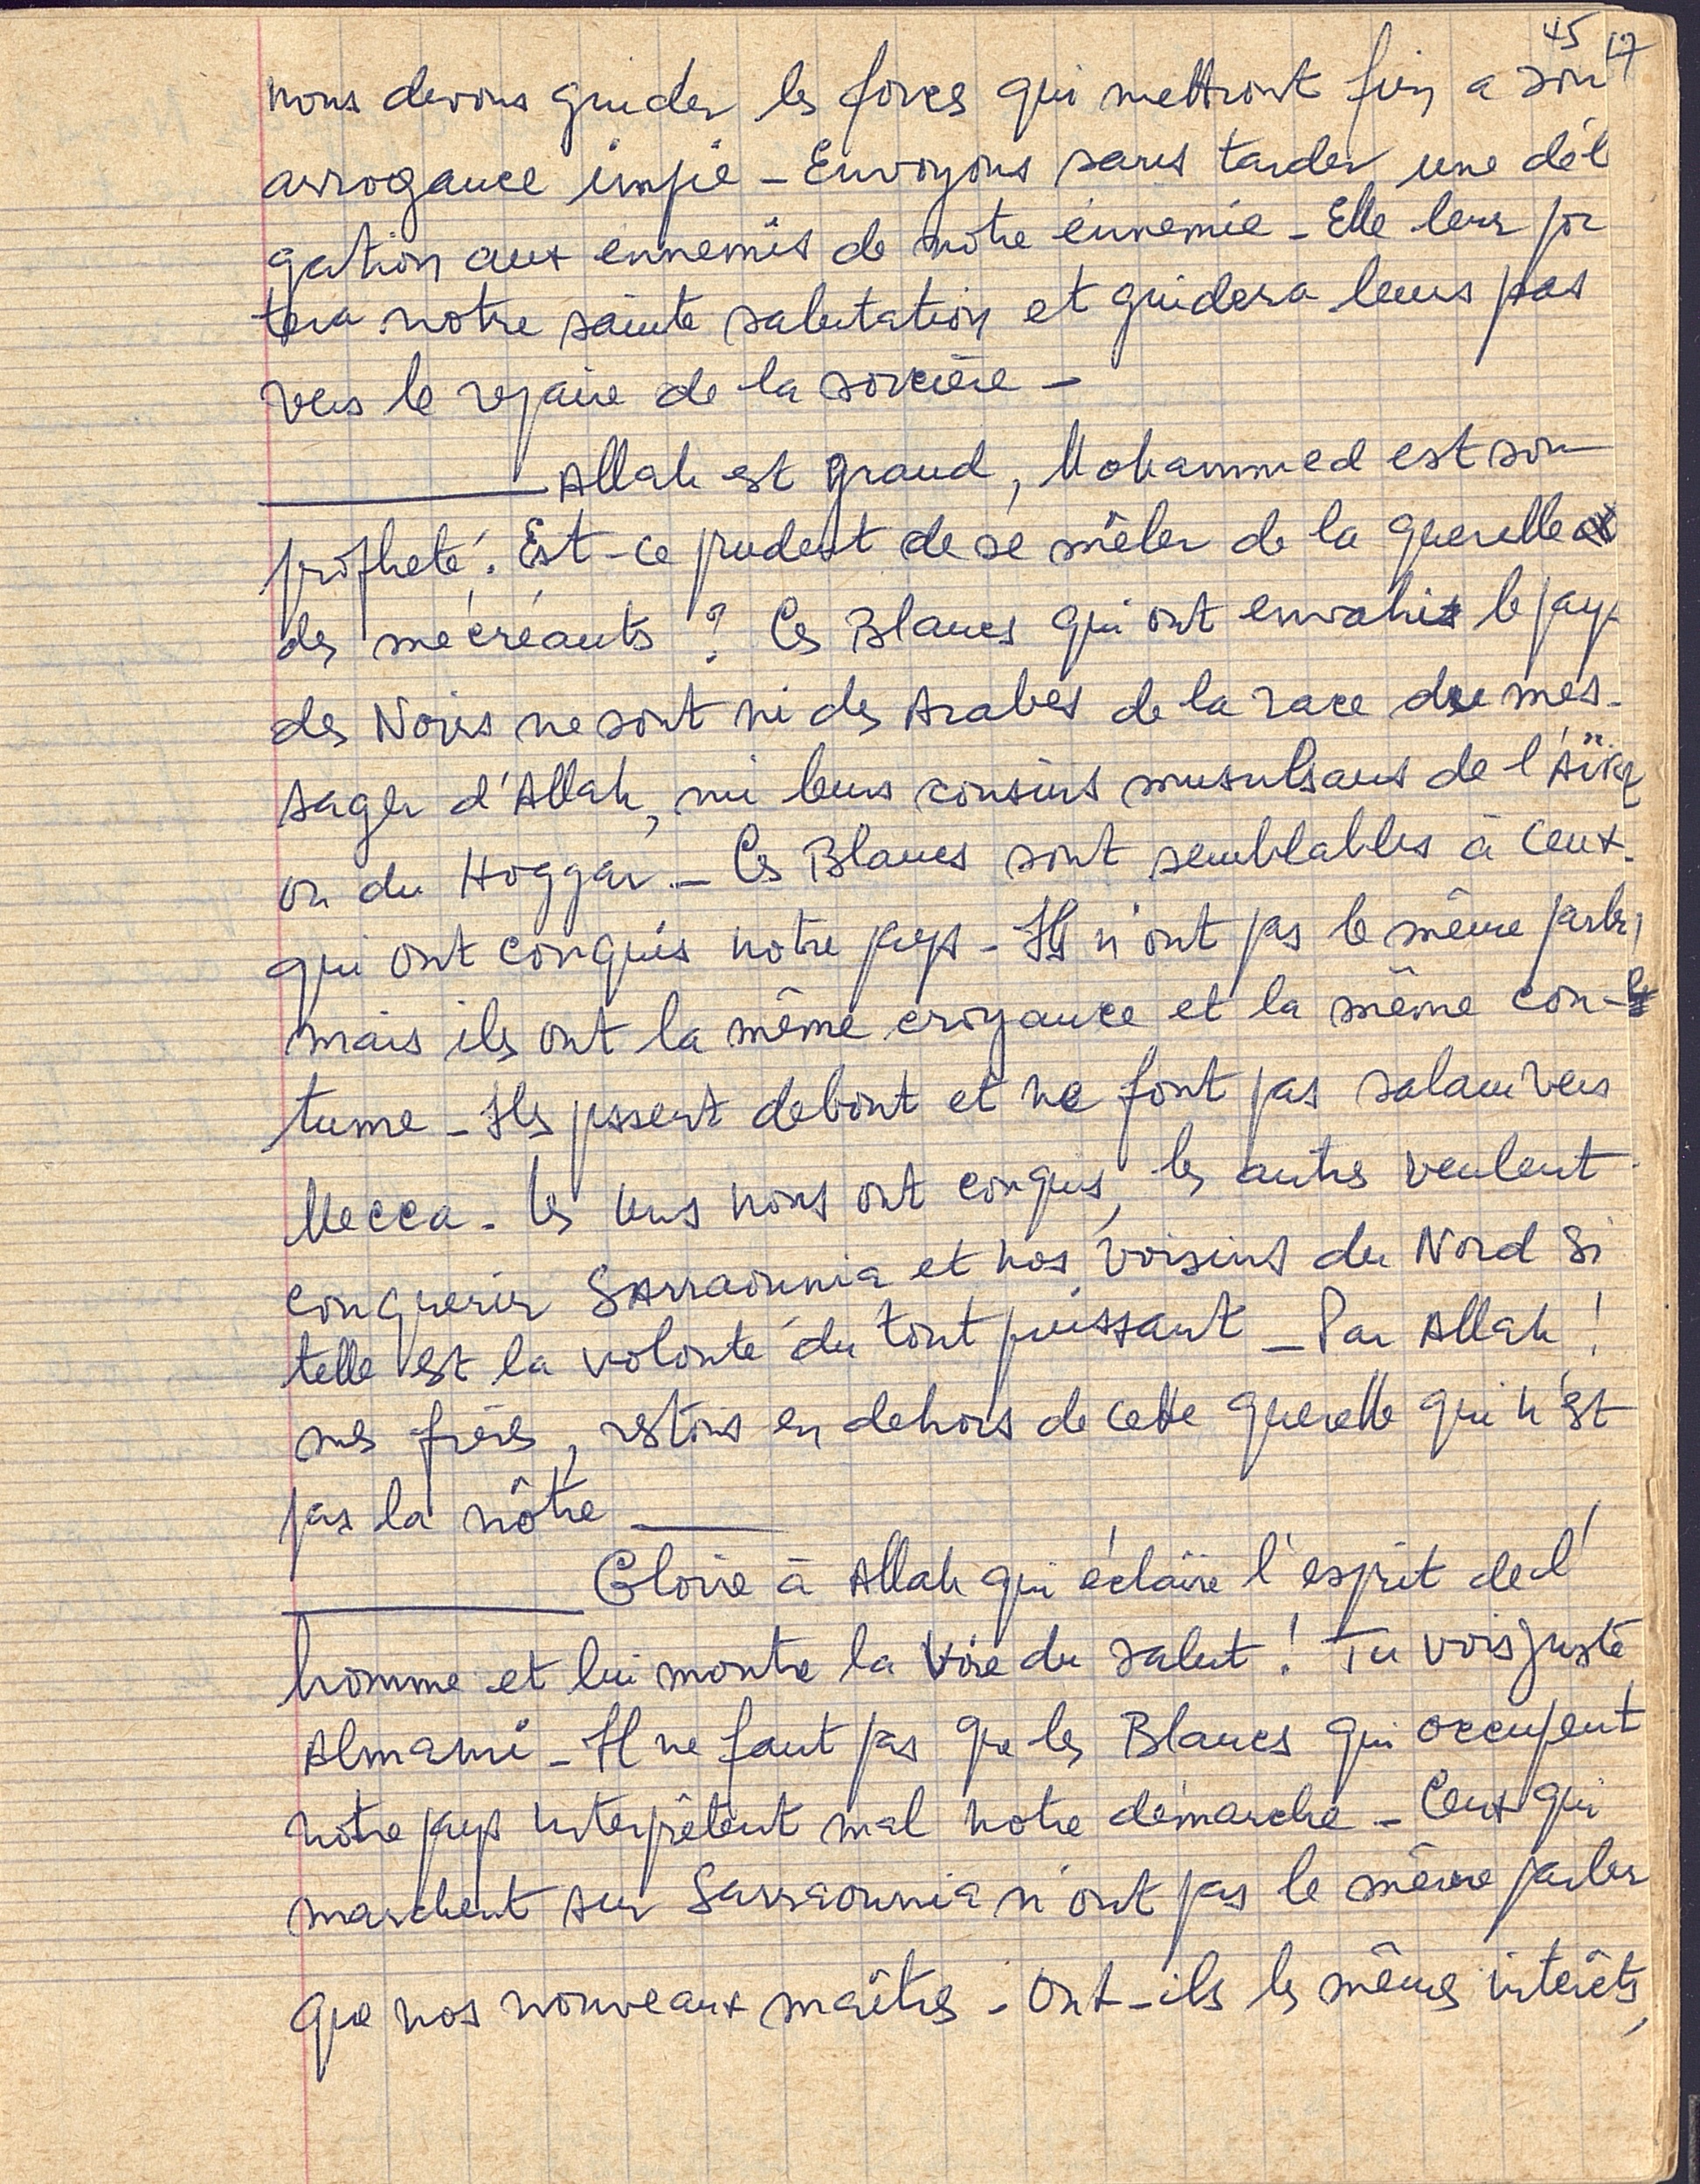 45 17
nous devons guider les forces qui mettront fin a son
arrogance impie - Envoyons sans tarder une dél
gation aux ennemis de notre ennemie - Elle leur por
tera notre sainte salutation et guidera leurs pas
vers le repaire de la sorcière -
Allah est grand, Mohammed est son
prophète. Est-ce prudent de se mêler de la querelle
des mécréants ? Ces Blancs qui ont envahi le pays
des Noirs ne sont ni des Arabes de la race du mes-
sager d'Allah, ni leurs cousins musulmans de l'Aïr
ou du Hoggar - Ces Blancs sont semblables à ceux
qui ont conquis notre pays - Ils n'ont pas le même parler,
mais ils ont la même croyance et la même cou-
tume - Ils pissent debout et ne font pas salam vers
Mecca - Les uns nous ont conquis, les autres veulent
conquerir Sarraounia et nos voisins du Nord si
telle est la volonté du tout puissant - Par Allah !
mes frères, restons en dehors de cette querelle qui n'est
pas la nôtre -
Gloire à Allah qui éclaire l'esprit de l'
homme et lui montre la voie du salut ! Tu vois juste
Almami - Il ne faut pas que les Blancs qui occupent
notre pays interprêtent mal notre démarche - Ceux qui
marchent sur Sarraounia n'ont pas le même parler
que nos nouveaux maîtres - Ont-ils les mêmes intérêts,